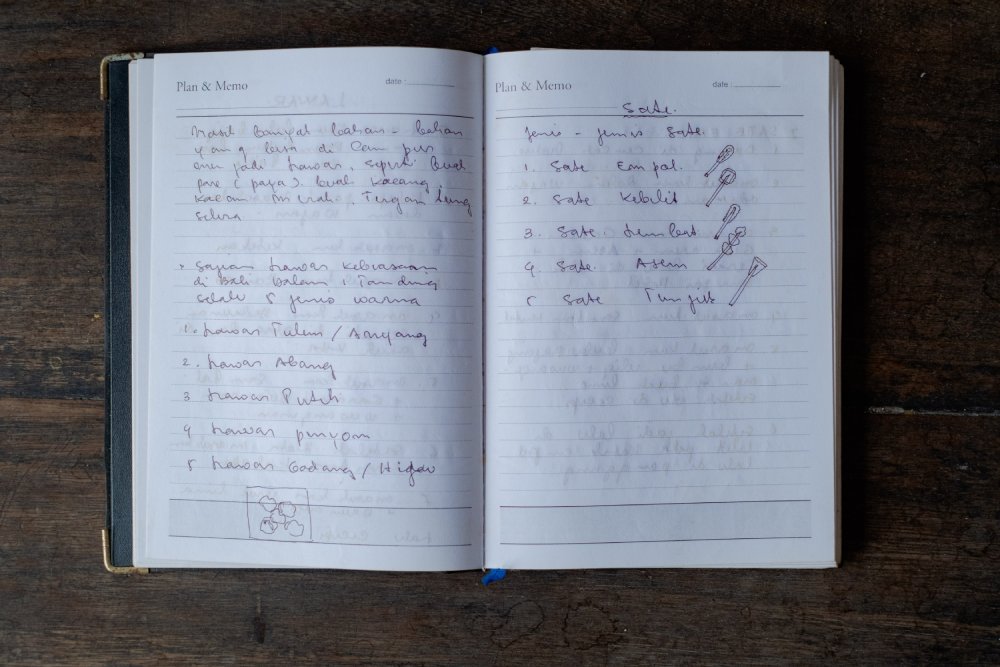 Plan & Memo
date :
Masih banyak bahan - bahan
yang bisa di Campur
jadi Lawar, seperti buah
pare (paya). buah kacang,
kacang merah. Tergantung
selera
Sajian Lawar kebiasaan
di Bali dalam 1 Tanding
selalu 5 jenis warna
1. Lawar
2. Lawar Abang
3 Lawar Putih
4 Lawar penyon
5 Lawar Gadang / Hijau
Plan & Memo
date :
Sate.
Jenis - jenis Sate
1. Sate Empol.
2. Sate Kebelit
3. Sate Lembat
4. Sate. Asem
5 Sate